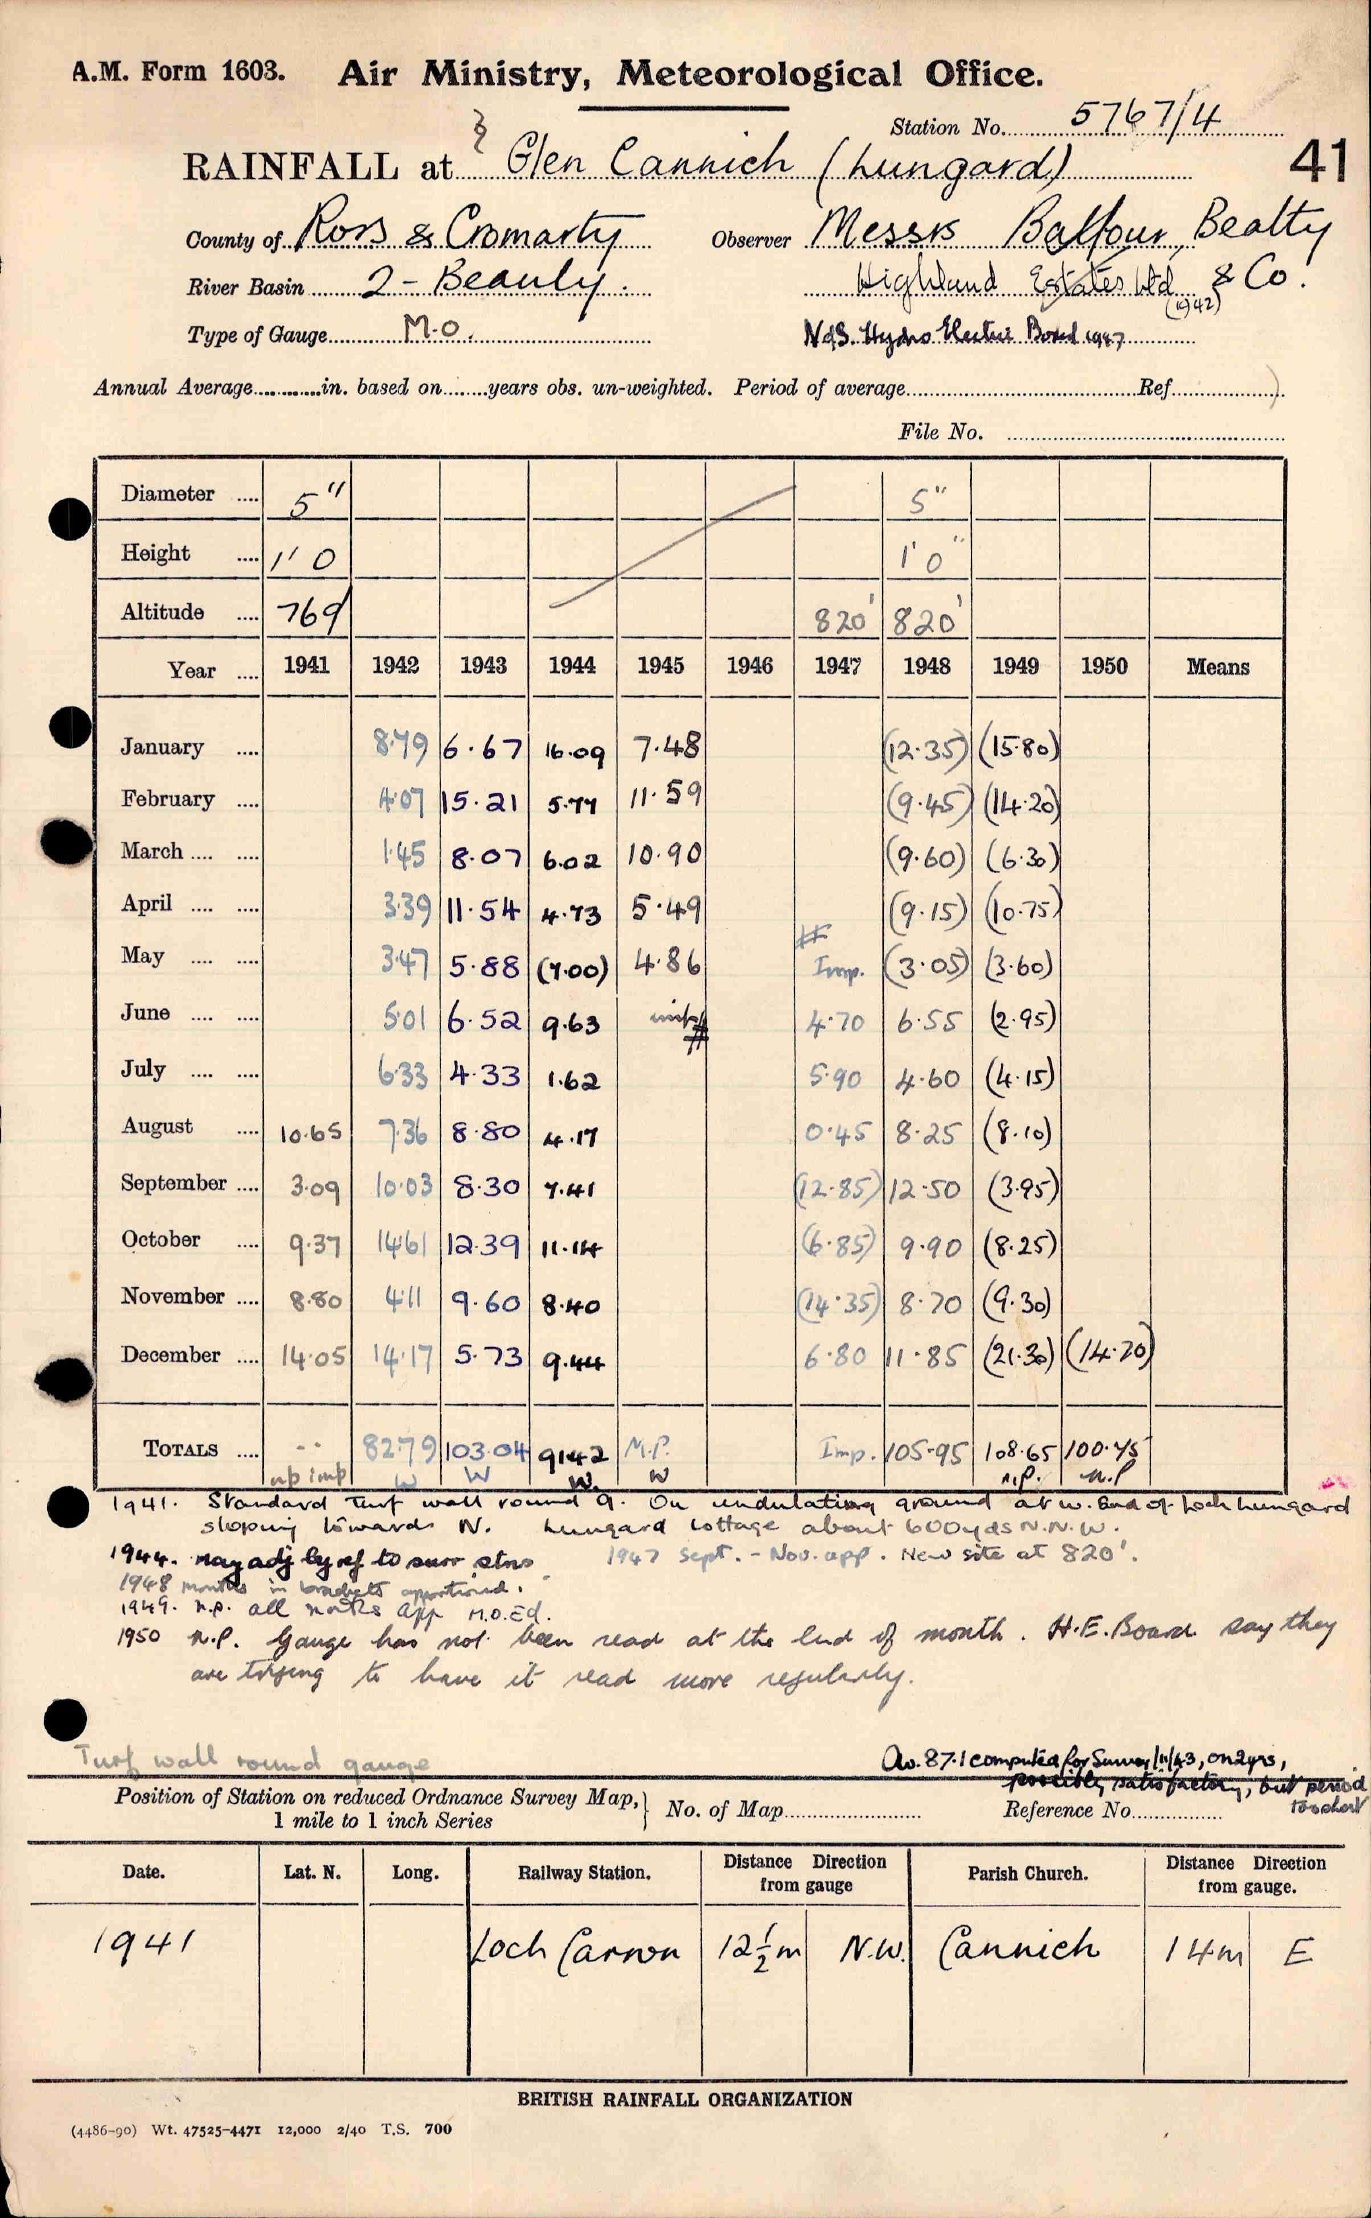 A.M. Form 1603. Air Ministry, Meteorological Office.
Station No. 5767/4
RAINFALL at Glen Cannich (Lungard)
41
County of Ross & Cromarty Observer Messrs Balfour, Beatty
River Basin 2 - Beauly. Highland Estates Ltd & Co.
(1942)
Type of Gauge M.O. N of S. Hydro Electric Board 1947
Annual Average in. based on years obs. un-weighted. Period of average Ref.
File No.
Diameter .... 5" 5"
Height .... 1' 0 1' 0"
Altitude .... 769' 820' 820'
Year .... 1941 1942 1943 1944 1945 1946 1947 1948 1949 1950 Means
January .... 8.79 6.67 16.09 7.48 (12.35) (15.80)
February .... 4.07 15.21 5.77 11.59 (9.45) (14.20)
March .... .... 1.45 8.07 6.02 10.90 (9.60) (6.30)
April .... .... 3.39 11.54 4.73 5.49 (9.15) (10.75)
May .... .... 3.47 5.88 (7.00) 4.86 Imp. (3.05) (3.60)
June .... .... 5.01 6.52 9.63 4.70 6.55 (2.95)
July .... .... 6.33 4.33 1.62 5.90 4.60 (4.15)
August .... 10.65 7.36 8.80 4.17 0.45 8.25 (8.10)
September .... 3.09 10.03 8.30 7.41 (12.85) 12.50 (3.95)
October .... 9.37 14.61 12.39 11.14 (6.85) 9.90 (8.25)
November .... 8.80 4.11 9.60 8.40 (14.35) 8.70 (9.30)
December .... 14.05 14.17 5.73 9.44 6.80 11.85 (21.30) (14.70)
TOTALS .... -- 82.79 103.04 91.42 M.P. Imp. 105.95 108.65 100.45
np imp W W W. W n.p. n.p
1941. Standard Turf wall round g. On undulating ground at W. End of Loch Lungard
sloping towards N. Lungard Cottage about 600yds N.N.W.
1944. May adj by ref to surr stns 1947 Sept. - Nov. app. New site at 820'.
1948 months in brackets apportioned.
1949. n.p. all months app M.O.Ed.
1950 n.p. Gauge has not been read at the end of month. H.E. Board say they
are trying to have it read more regularly.
Turf wall round gauge
Av. 87.1 computed for Survey 11/43, on 2 yrs,
possibly satisfactory, but period
too short
Position of Station on reduced Ordnance Survey Map, } No. of Map Reference No.
1 mile to 1 inch Series
Date. Lat. N. Long. Railway Station. Distance Direction from gauge Parish Church. Distance Direction from gauge.
1941 Loch Carron 12½m N.W. Cannich 14m E
BRITISH RAINFALL ORGANIZATION
(4486-90) Wt. 47525-4471 12,000 2/40 T.S. 700